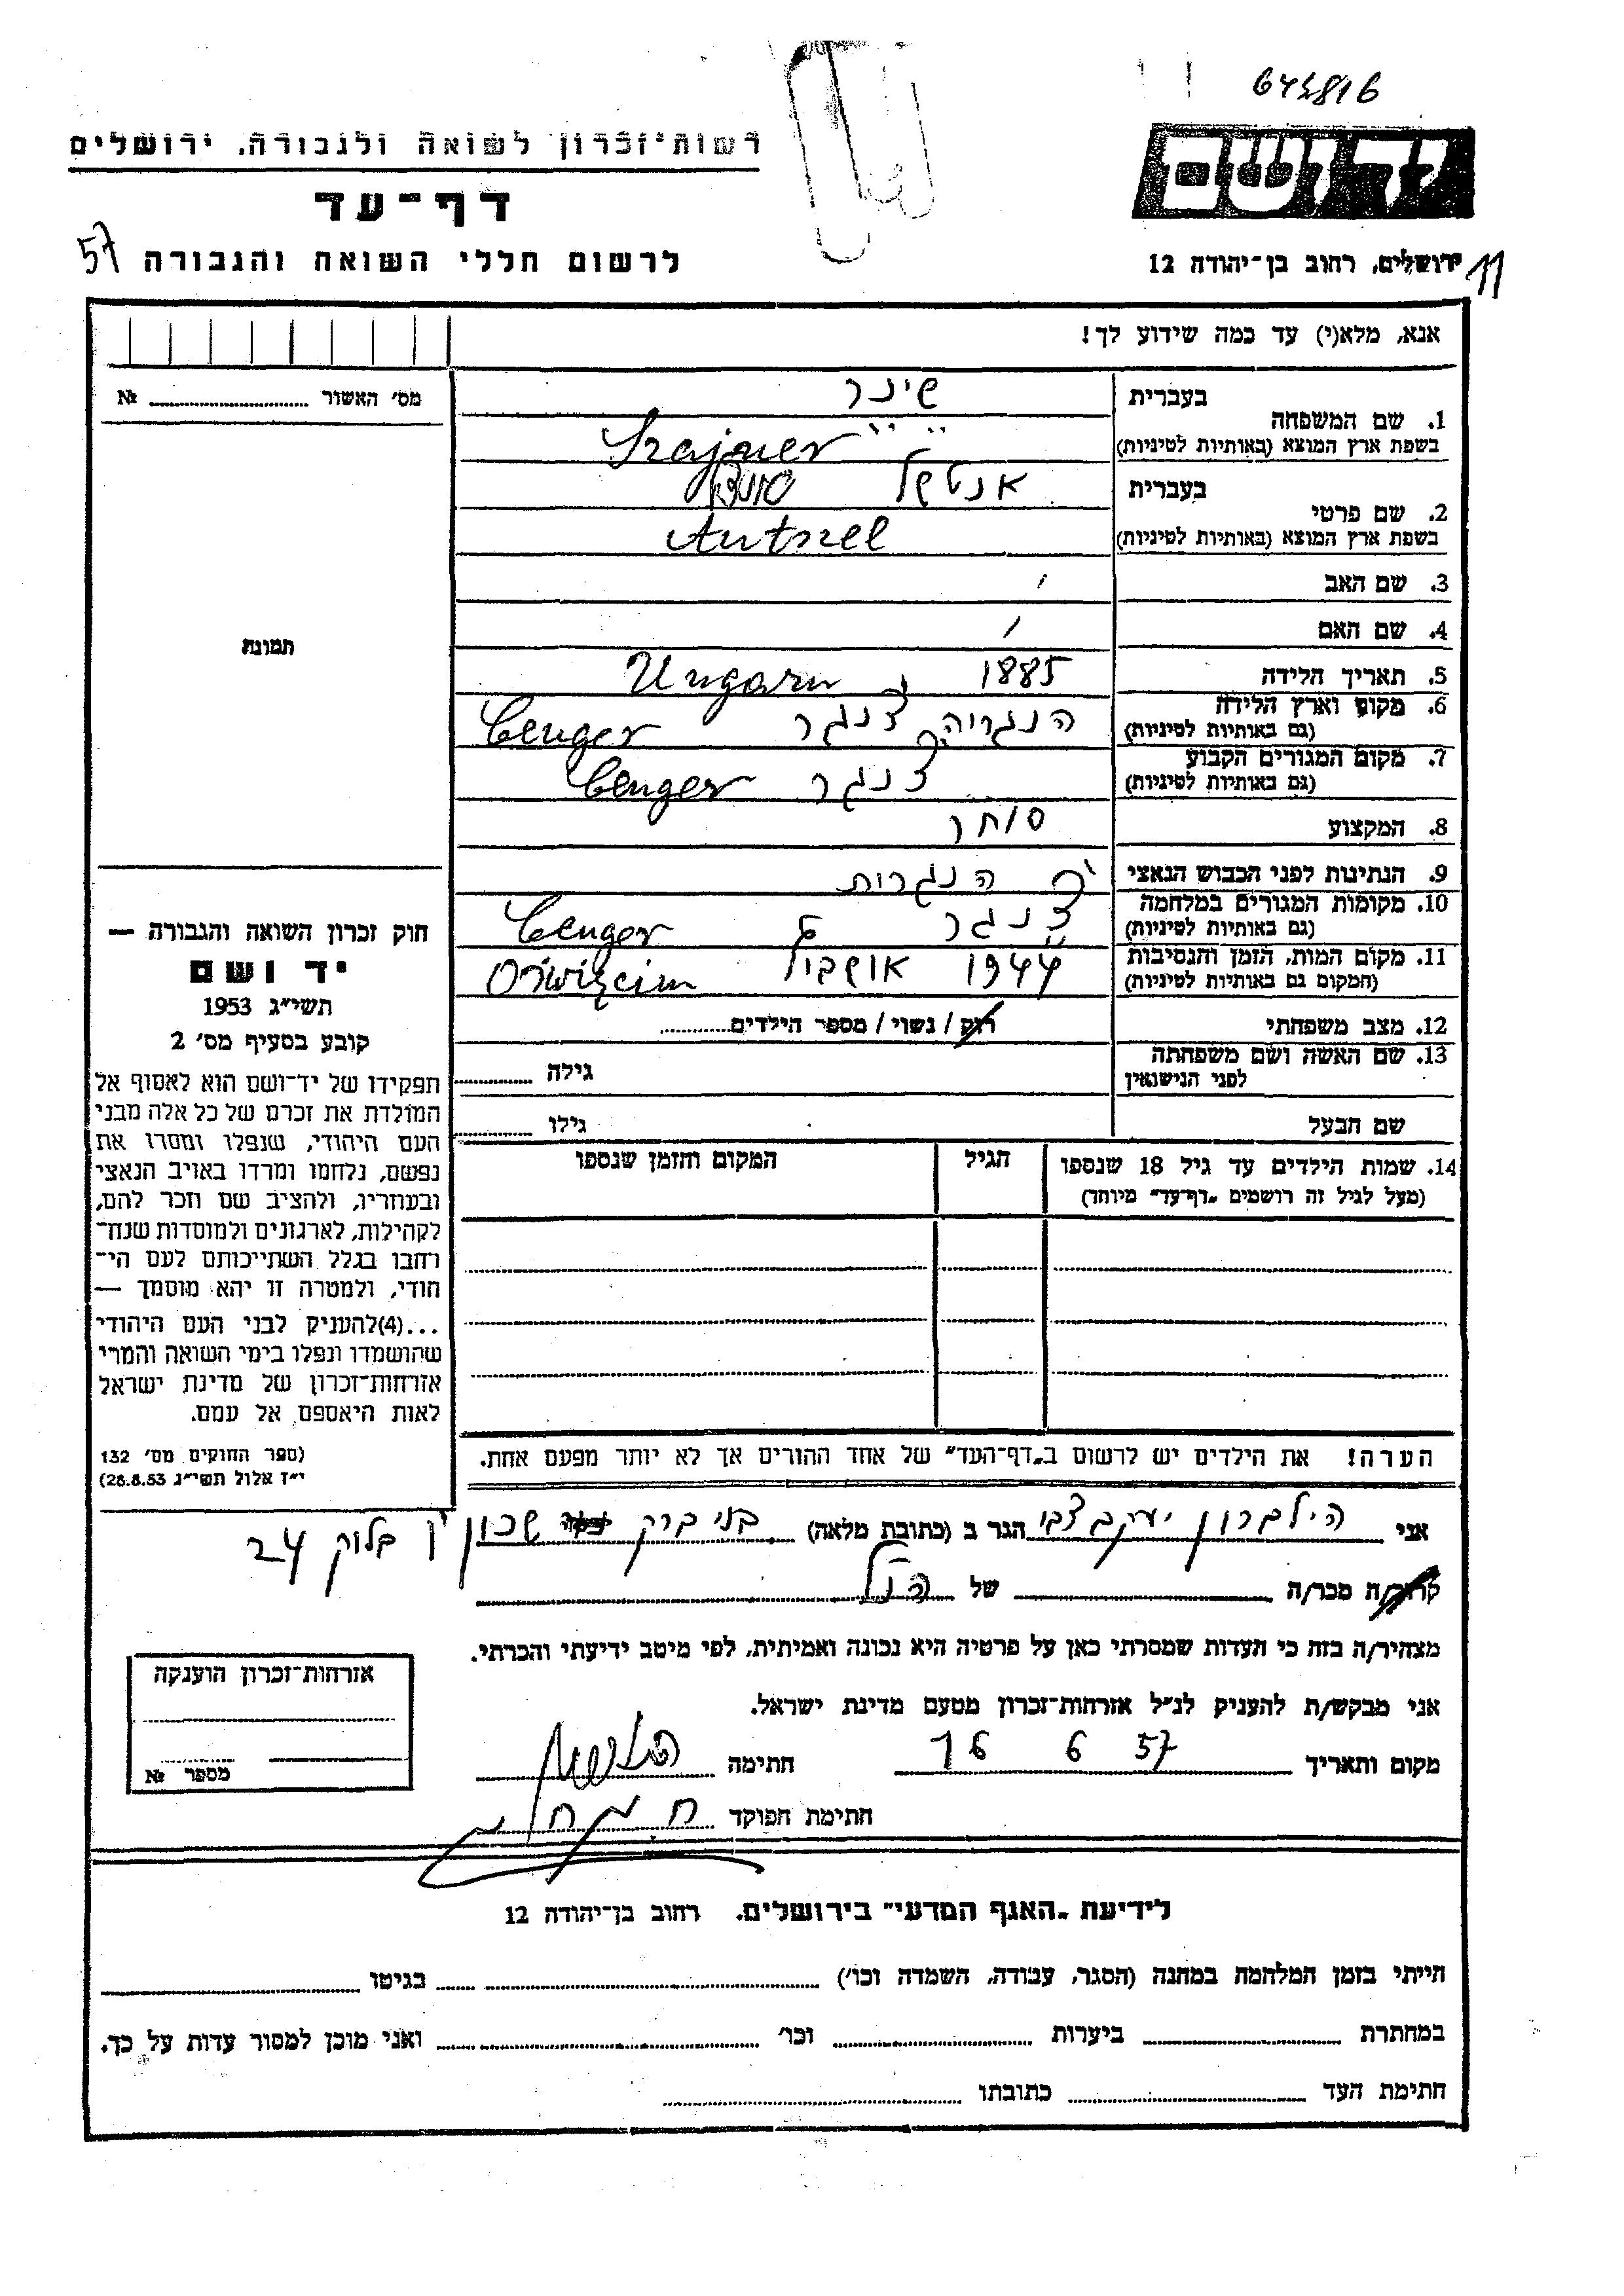 645816
יד ושם
רשות־זכרון לשואה ולגבורה, ירושלים
דף־עד
לרשום חללי השואה והגבורה
57
ירושלים, רחוב בן־יהודה 12
11
אנא, מלא(י) עד כמה שידוע לך!
מס׳ האשור № 
1. שם המשפחה
בעברית
שינר
בשפת ארץ המוצא (באותיות לטיניות)
Szajner
2. שם פרטי
בעברית
אנטשל
בשפת ארץ המוצא (באותיות לטיניות)
Antszel
3. שם האב
4. שם האם
5. תאריך הלידה
1885 Ungarn
6. מקום וארץ הלידה
(גם באותיות לטיניות)
הנגריה צנגר Cenger
7. מקום המגורים הקבוע
(גם באותיות לטיניות)
צנגר Cenger
8. המקצוע
סוחר
9. הנתינות לפני הכבוש הנאצי
הנגרית
10. מקומות המגורים במלחמה
(גם באותיות לטיניות)
צנגר Cenger
11. מקום המות, הזמן והנסיבות
(המקום גם באותיות לטיניות)
1944 Oświęcim
12. מצב משפחתי
רוק / נשוי / מספר הילדים
13. שם האשה ושם משפחתה
לפני הנישואין
גילה
שם הבעל
גילו
14. שמות הילדים עד גיל 18 שנספו
(מעל לגיל זה רושמים „דף־עד״ מיוחד)
הגיל
המקום והזמן שנספו
הערה! את הילדים יש לרשום ב„דף־העד״ של אחד ההורים אך לא יותר מפעם אחת.
תמונה
חוק זכרון השואה והגבורה —
יד ושם
תשי״ג 1953
קובע בסעיף מס׳ 2
תפקידו של יד־ושם הוא לאסוף אל
המולדת את זכרם של כל אלה מבני
העם היהודי, שנפלו ומסרו את
נפשם, נלחמו ומרדו באויב הנאצי
ובעוזריו, ולהציב שם וזכר להם,
לקהילות, לארגונים ולמוסדות שנח־
רבו בגלל השתייכותם לעם הי־
הודי, ולמטרה זו יהא מוסמך —
...(4)להעניק לבני העם היהודי
שהושמדו ונפלו בימי השואה והמרי
אזרחות־זכרון של מדינת ישראל
לאות היאספם אל עמם.
(ספר החוקים מס׳ 132
י״ז אלול תשי״ג 28.8.53)
אני הילברון יעקב צבי הגר ב (כתובת מלאה) בני ברק שכון בלוק 24
קרוב/ה מכר/ה של הנ״ל
מצהיר/ה בזה כי העדות שמסרתי כאן על פרטיה היא נכונה ואמיתית, לפי מיטב ידיעתי והכרתי.
אני מבקש/ת להעניק לנ״ל אזרחות־זכרון מטעם מדינת ישראל.
מקום ותאריך 16 6 57 חתימה
חתימת הפוקד
אזרחות־זכרון הוענקה
מספר №
לידיעת „האגף המדעי״ בירושלים, רחוב בן־יהודה 12
הייתי בזמן המלחמה במחנה (הסגר, עבודה, השמדה וכו׳) בגיטו
במחתרת ביערות וכו׳ ואני מוכן למסור עדות על כך.
חתימת העד כתובתו